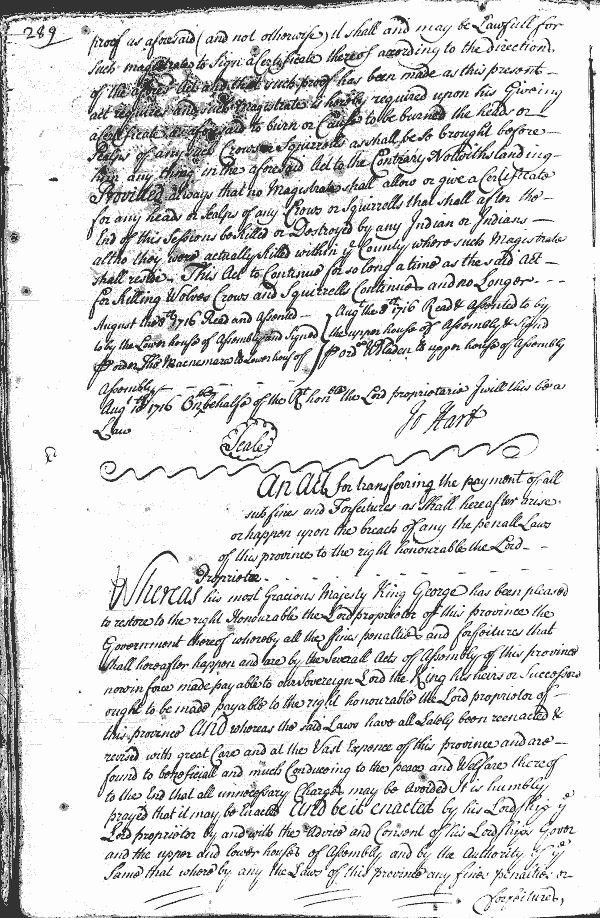 289
proof as aforesaid (and not otherwise) it shall and may be Lawfull for
such magistrate to Sign a Certificate thereof according to the direction
of the afores.d Act and that such proof has been made as this present
act requires and such magistrate is hereby required upon his Giveing
a Certificate as aforesaid to burn or Cause to be burned the heads or
Scalps of any such Crows or Squirrells as shall be so brought before
him any thing in the aforesaid Act to the Contrary Notwithstanding
Provided always that no Magistrate shall allow or give a Certificate
for any heads or Scalps of any Crows or Squirrells that shall after the
End of this Sessions be Killed or Destroyed by any Indian or Indians
altho they were actually Killed within ye County where such Magistrate
shall reside. This Act to Continue for so long a time as the said Act
for Killing Wolves Crows and Squirrells Continues and no Longer
August the 8th 1716 Read and Assented
to by the Lower house of Assembly and Signed
p order Tho Macnemara Cl Lower house of
Assembly
Augt the 8th 1716 Read & Assented to by
the upper house of Assembly & Signd
p order W Bladen Cl upper house of Assembly
Augt 10th 1716 On the behalfe of the Rt honble the Lord proprietarie I will this be a
Law
Jo Hart
Seale
An Act for transferring the payment of all
such fines and Forfeitures as Shall hereafter arise
or happen upon the breach of any the penall Laws
of this province to the right honourable the Lord
Proprietor
Whereas his most Gracious Majesty King George has been pleased
to restore to the right Honourable the Lord proprietor of this province the
Government thereof whereby all the fines penalties and forfeitures that
shall hereafter happen and are by the Severall Acts of Assembly of this province
now in force made payable to our Sovereign Lord the King his heirs or Successors
ought to be made payable to the right honourable the Lord proprietor of
this province And whereas the said Laws have all Lately been reenacted &
revised with great Care and at the Vast Expence of this province and are
found to beneficiall and much Conduceing to the peace and Welfare thereof
to the End that all unnecessary Charges may be avoided It is humbly
prayed that it may be Enacted And be it enacted by his Lordship ye
Lord proprietor by and with the Advice and Consent of his Lordships Gover
and the upper and lower houses of Assembly and by the Authority of ye
Same that where by any the Laws of this province any fines penalties or
forfeitures,